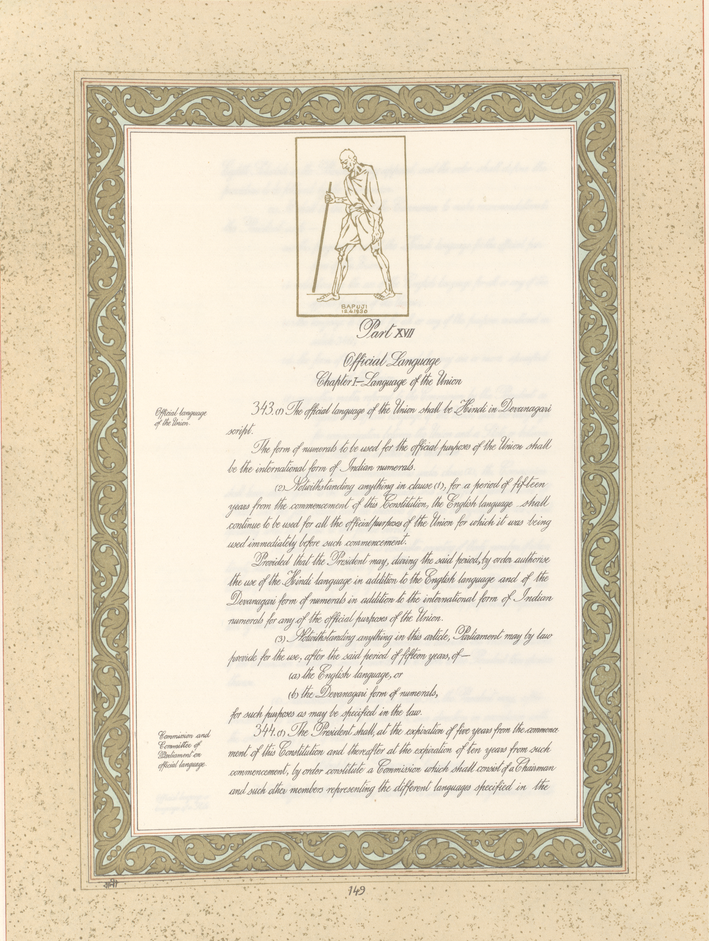 BAPUJI
12.4.1930
Part XVII
Official Language
Chapter I—Language of the Union
Official language
of the Union.
343.(1) The official language of the Union shall be Hindi in Devanagari
script.
The form of numerals to be used for the official purposes of the Union shall
be the international form of Indian numerals.
(2) Notwithstanding anything in clause (1), for a period of fifteen
years from the commencement of this Constitution, the English language shall
continue to be used for all the official purposes of the Union for which it was being
used immediately before such commencement:
Provided that the President may, during the said period, by order authorise
the use of the Hindi language in addition to the English language and of the
Devanagari form of numerals in addition to the international form of Indian
numerals for any of the official purposes of the Union.
(3) Notwithstanding anything in this article, Parliament may by law
provide for the use, after the said period of fifteen years, of—
(a) the English language, or
(b) the Devanagari form of numerals,
for such purposes as may be specified in the law.
Commission and
Committee of
Parliament on
official language.
344.(1) The President shall, at the expiration of five years from the commence
ment of this Constitution and thereafter at the expiration of ten years from such
commencement, by order constitute a Commission which shall consist of a Chairman
and such other members representing the different languages specified in the
149